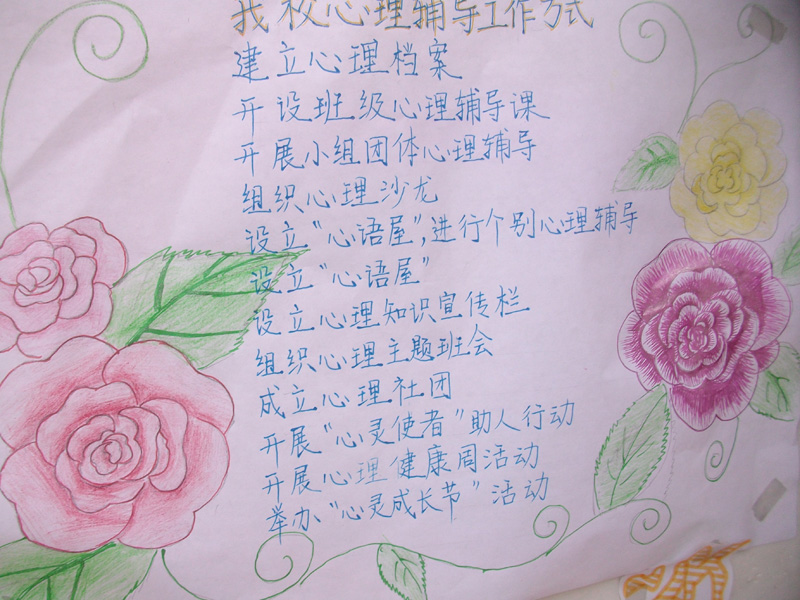 我校心理辅导工作方式
建立心理档案
开设班级心理辅导课
开展小组团体心理辅导
组织心理沙龙
设立“心语屋”,进行个别心理辅导
设立“心语屋”
设立心理知识宣传栏
组织心理主题班会
成立心理社团
开展“心灵使者”助人行动
开展心理健康周活动
举办“心灵成长节”活动